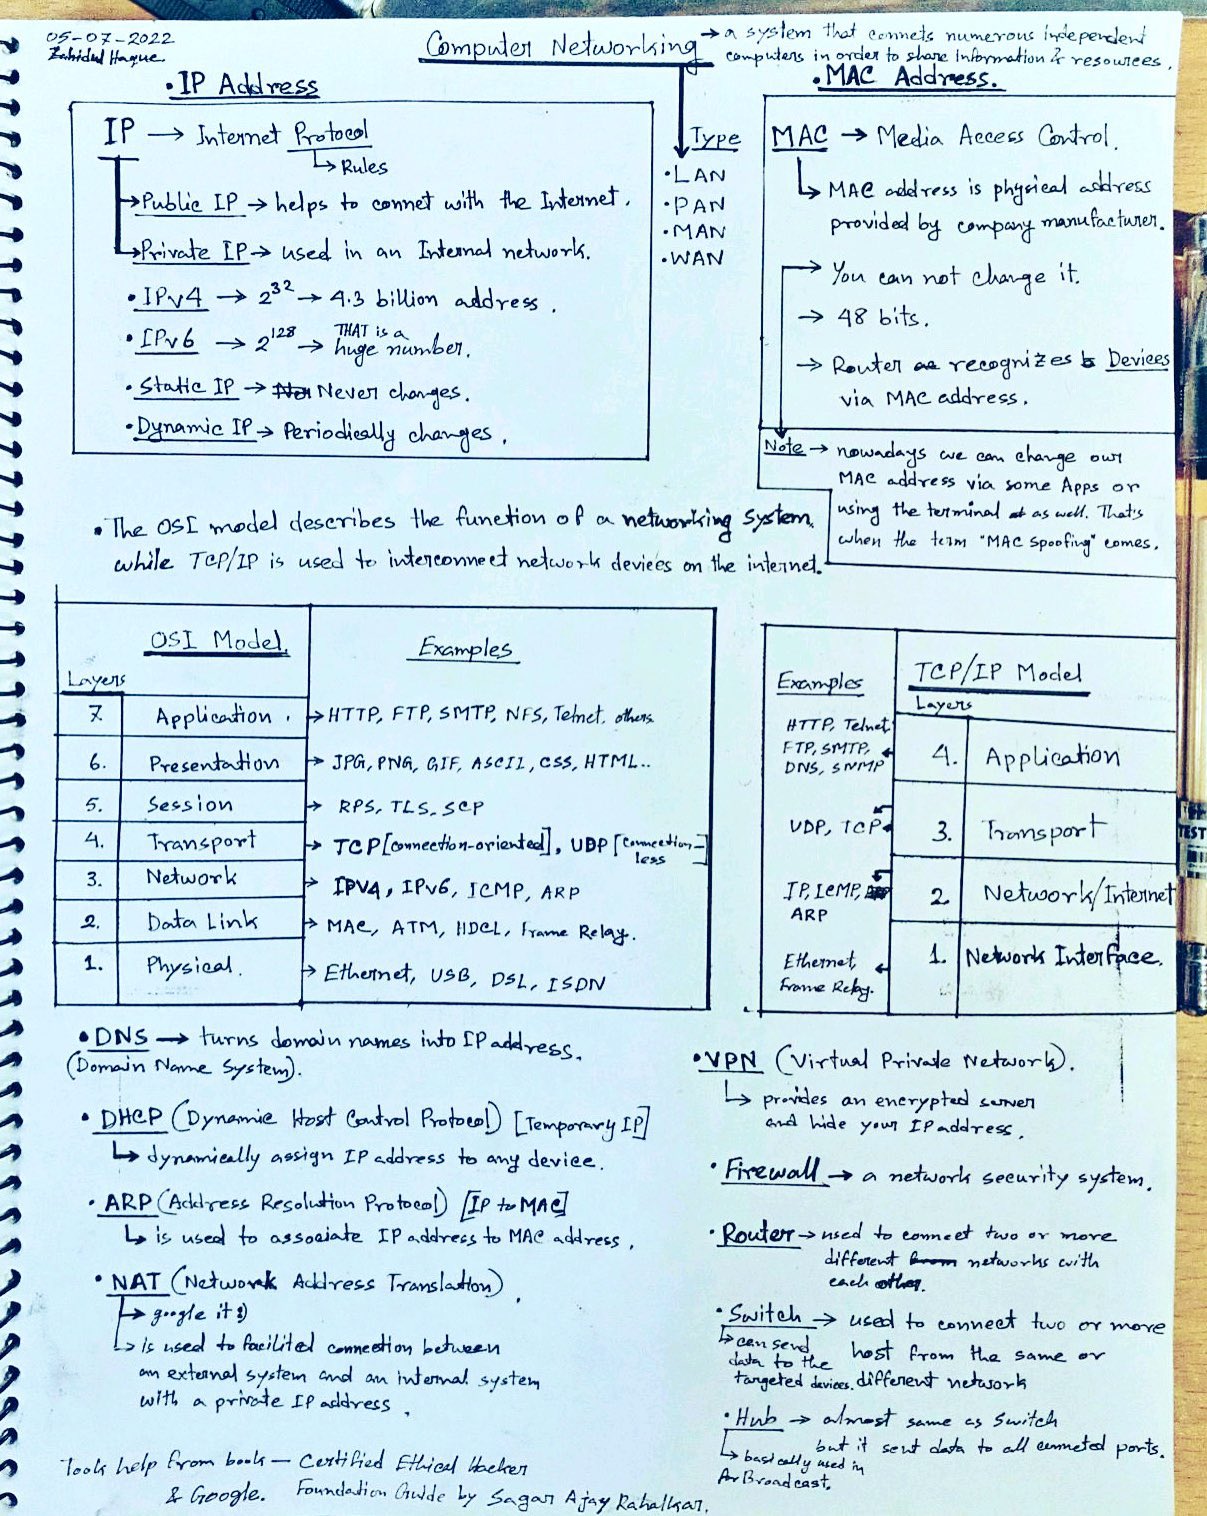 05-07-2022
Zahidul Haque
Computer Networking → a system that connets numerous independent
computers in order to share information & resources.
• IP Address
IP → Internet Protocol
↳ Rules
→ Public IP → helps to connet with the Internet.
→ Private IP → used in an Internal network.
• IPv4 → 2^32 → 4.3 billion address.
• IPv6 → 2^128 → THAT is a
huge number.
• Static IP → Never changes.
• Dynamic IP → Periodically changes.
Type
• LAN
• PAN
• MAN
• WAN
• MAC Address.
MAC → Media Access Control.
↳ MAC address is physical address
provided by company manufacturer.
→ You can not change it.
→ 48 bits.
→ Router recognizes Devices
via MAC address.
Note → nowadays we can change our
MAC address via some Apps or
using the terminal as well. That's
when the term "MAC spoofing" comes.
• The OSI model describes the function of a networking system.
while TCP/IP is used to interconnect network devices on the internet.
OSI Model. Examples
Layers
7. Application. → HTTP, FTP, SMTP, NFS, Telnet, others.
6. Presentation → JPG, PNG, GIF, ASCII, CSS, HTML..
5. Session → RPS, TLS, SCP
4. Transport → TCP [connection-oriented], UDP [connection-
less]
3. Network → IPV4, IPv6, ICMP, ARP
2. Data Link → MAC, ATM, HDCL, Frame Relay.
1. Physical. → Ethernet, USB, DSL, ISDN
Examples TCP/IP Model
Layers
HTTP, Telnet,
FTP, SMTP, ← 4. Application
DNS, SNMP
UDP, TCP ← 3. Transport
IP, ICMP, ← 2. Network/Internet
ARP
Ethernet, ← 1. Network Interface.
Frame Relay.
• DNS → turns domain names into IP address.
(Domain Name System).
• DHCP (Dynamic Host Control Protocol) [Temporary IP]
↳ dynamically assign IP address to any device.
• ARP (Address Resolution Protocol) [IP to MAC]
↳ is used to associate IP address to MAC address.
• NAT (Network Address Translation).
→ google it :)
↳ is used to facilited connection between
an external system and an internal system
with a private IP address.
• VPN (Virtual Private Network).
↳ provides an encrypted server
and hide your IP address.
• Firewall → a network security system.
• Router → used to connect two or more
different networks with
each other.
• Switch → used to connect two or more
↳ can send host from the same or
data to the
targeted devices. different network
• Hub → almost same as Switch
but it sent data to all conneted ports.
↳ basically used in
Broadcast.
Took help from book — Certified Ethical Hacker
& Google. Foundation Guide by Sagar Ajay Rahalkar.
TEST